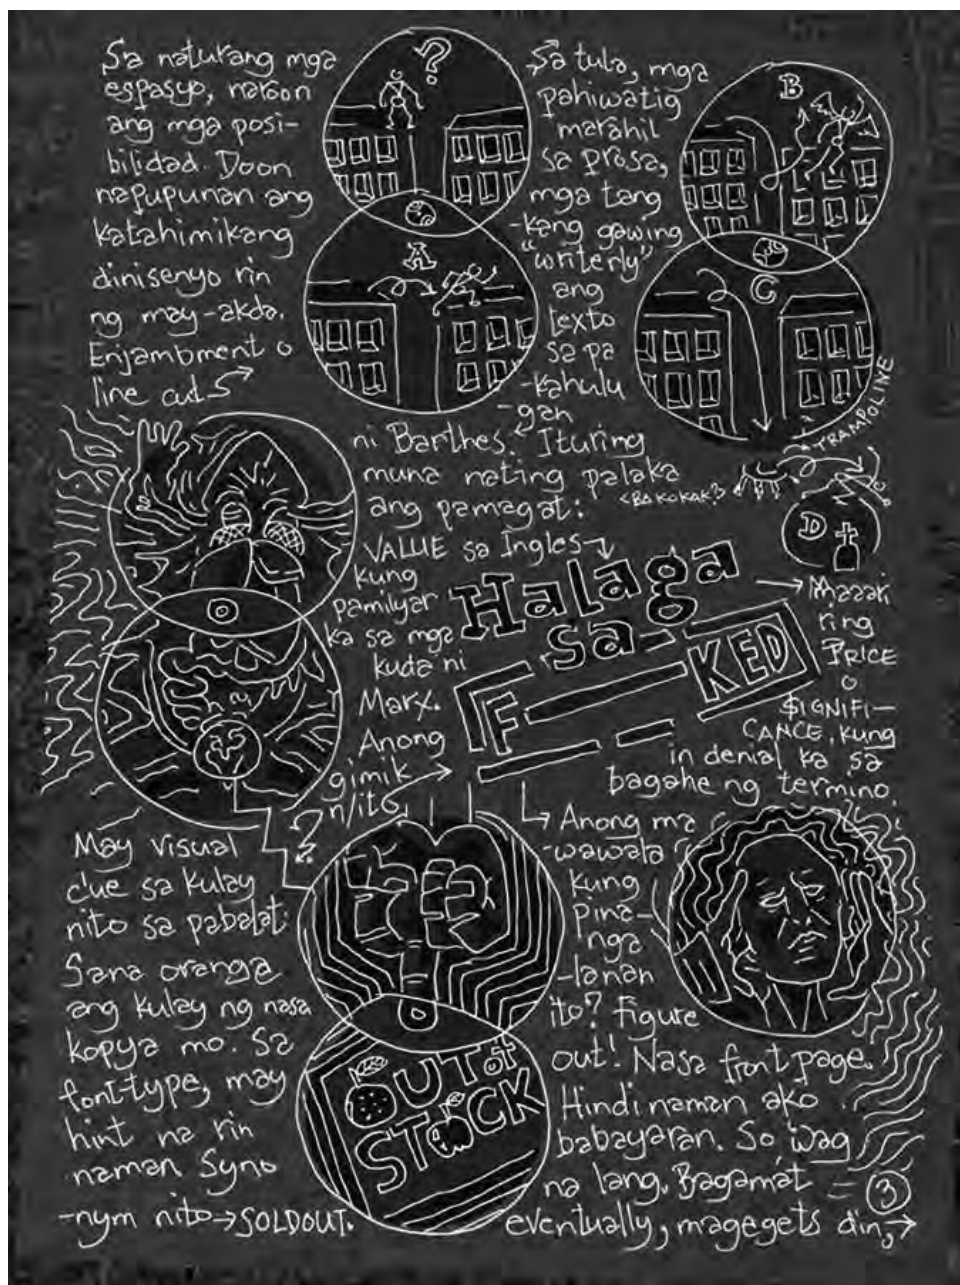 Sa naturang mga
espasyo, naroon
ang mga posi-
bilidad. Doon
napupunan ang
katahimikang
dinisenyo rin
ng may-akda.
Enjambment o
line cut →
?
A
→ Sa tula, mga
pahiwatig
marahil
sa prosa,
mga tang
-kang gawing
"writerly"
ang
texto
sa pa
-kahulu
-gan
B
C
ni Barthes. Ituring
muna nating palaka
ang pamagat:
<BA KOKAK?>
TRAMPOLINE
D
VALUE sa Ingles →
kung
pamilyar
ka sa mga
kuda ni
Marx.
Anong
gimik
n/ito
?
Halaga
sa
F KED
→ Maaari
ring
PRICE
o
$IGNIFI-
CANCE, kung
in denial ka sa
bagahe ng termino.
May visual
clue sa kulay
nito sa pabalat:
Sana oranga
ang kulay ng nasa
kopya mo. Sa
font-type, may
hint na rin
naman. Syno
-nym nito → SOLDOUT.
OUT of
STOCK
→ Anong ma
-wawala
kung
pina-
nga
-lanan
ito? Figure
out! Nasa front page.
Hindi naman ako
babayaran. So, wag
na lang. Bagamat
eventually, magegets din, →
3